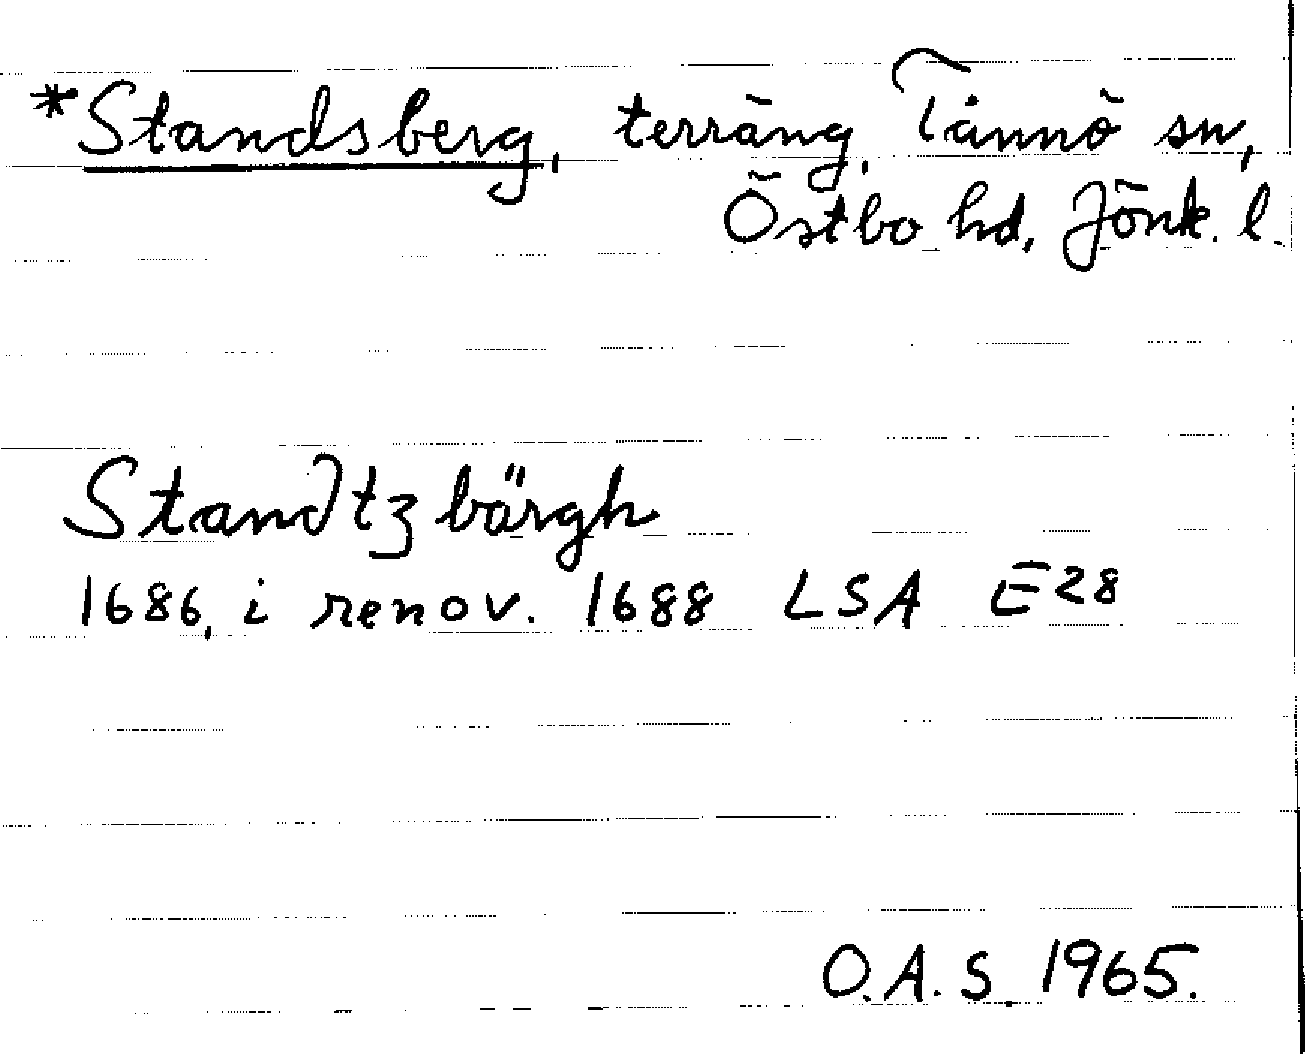 *Standsberg, terräng, Tånnö sn,
Östbo hd, Jönk. l.
Standtzbärgh
1686, i renov. 1688 LSA E28
O.A.S. 1965.